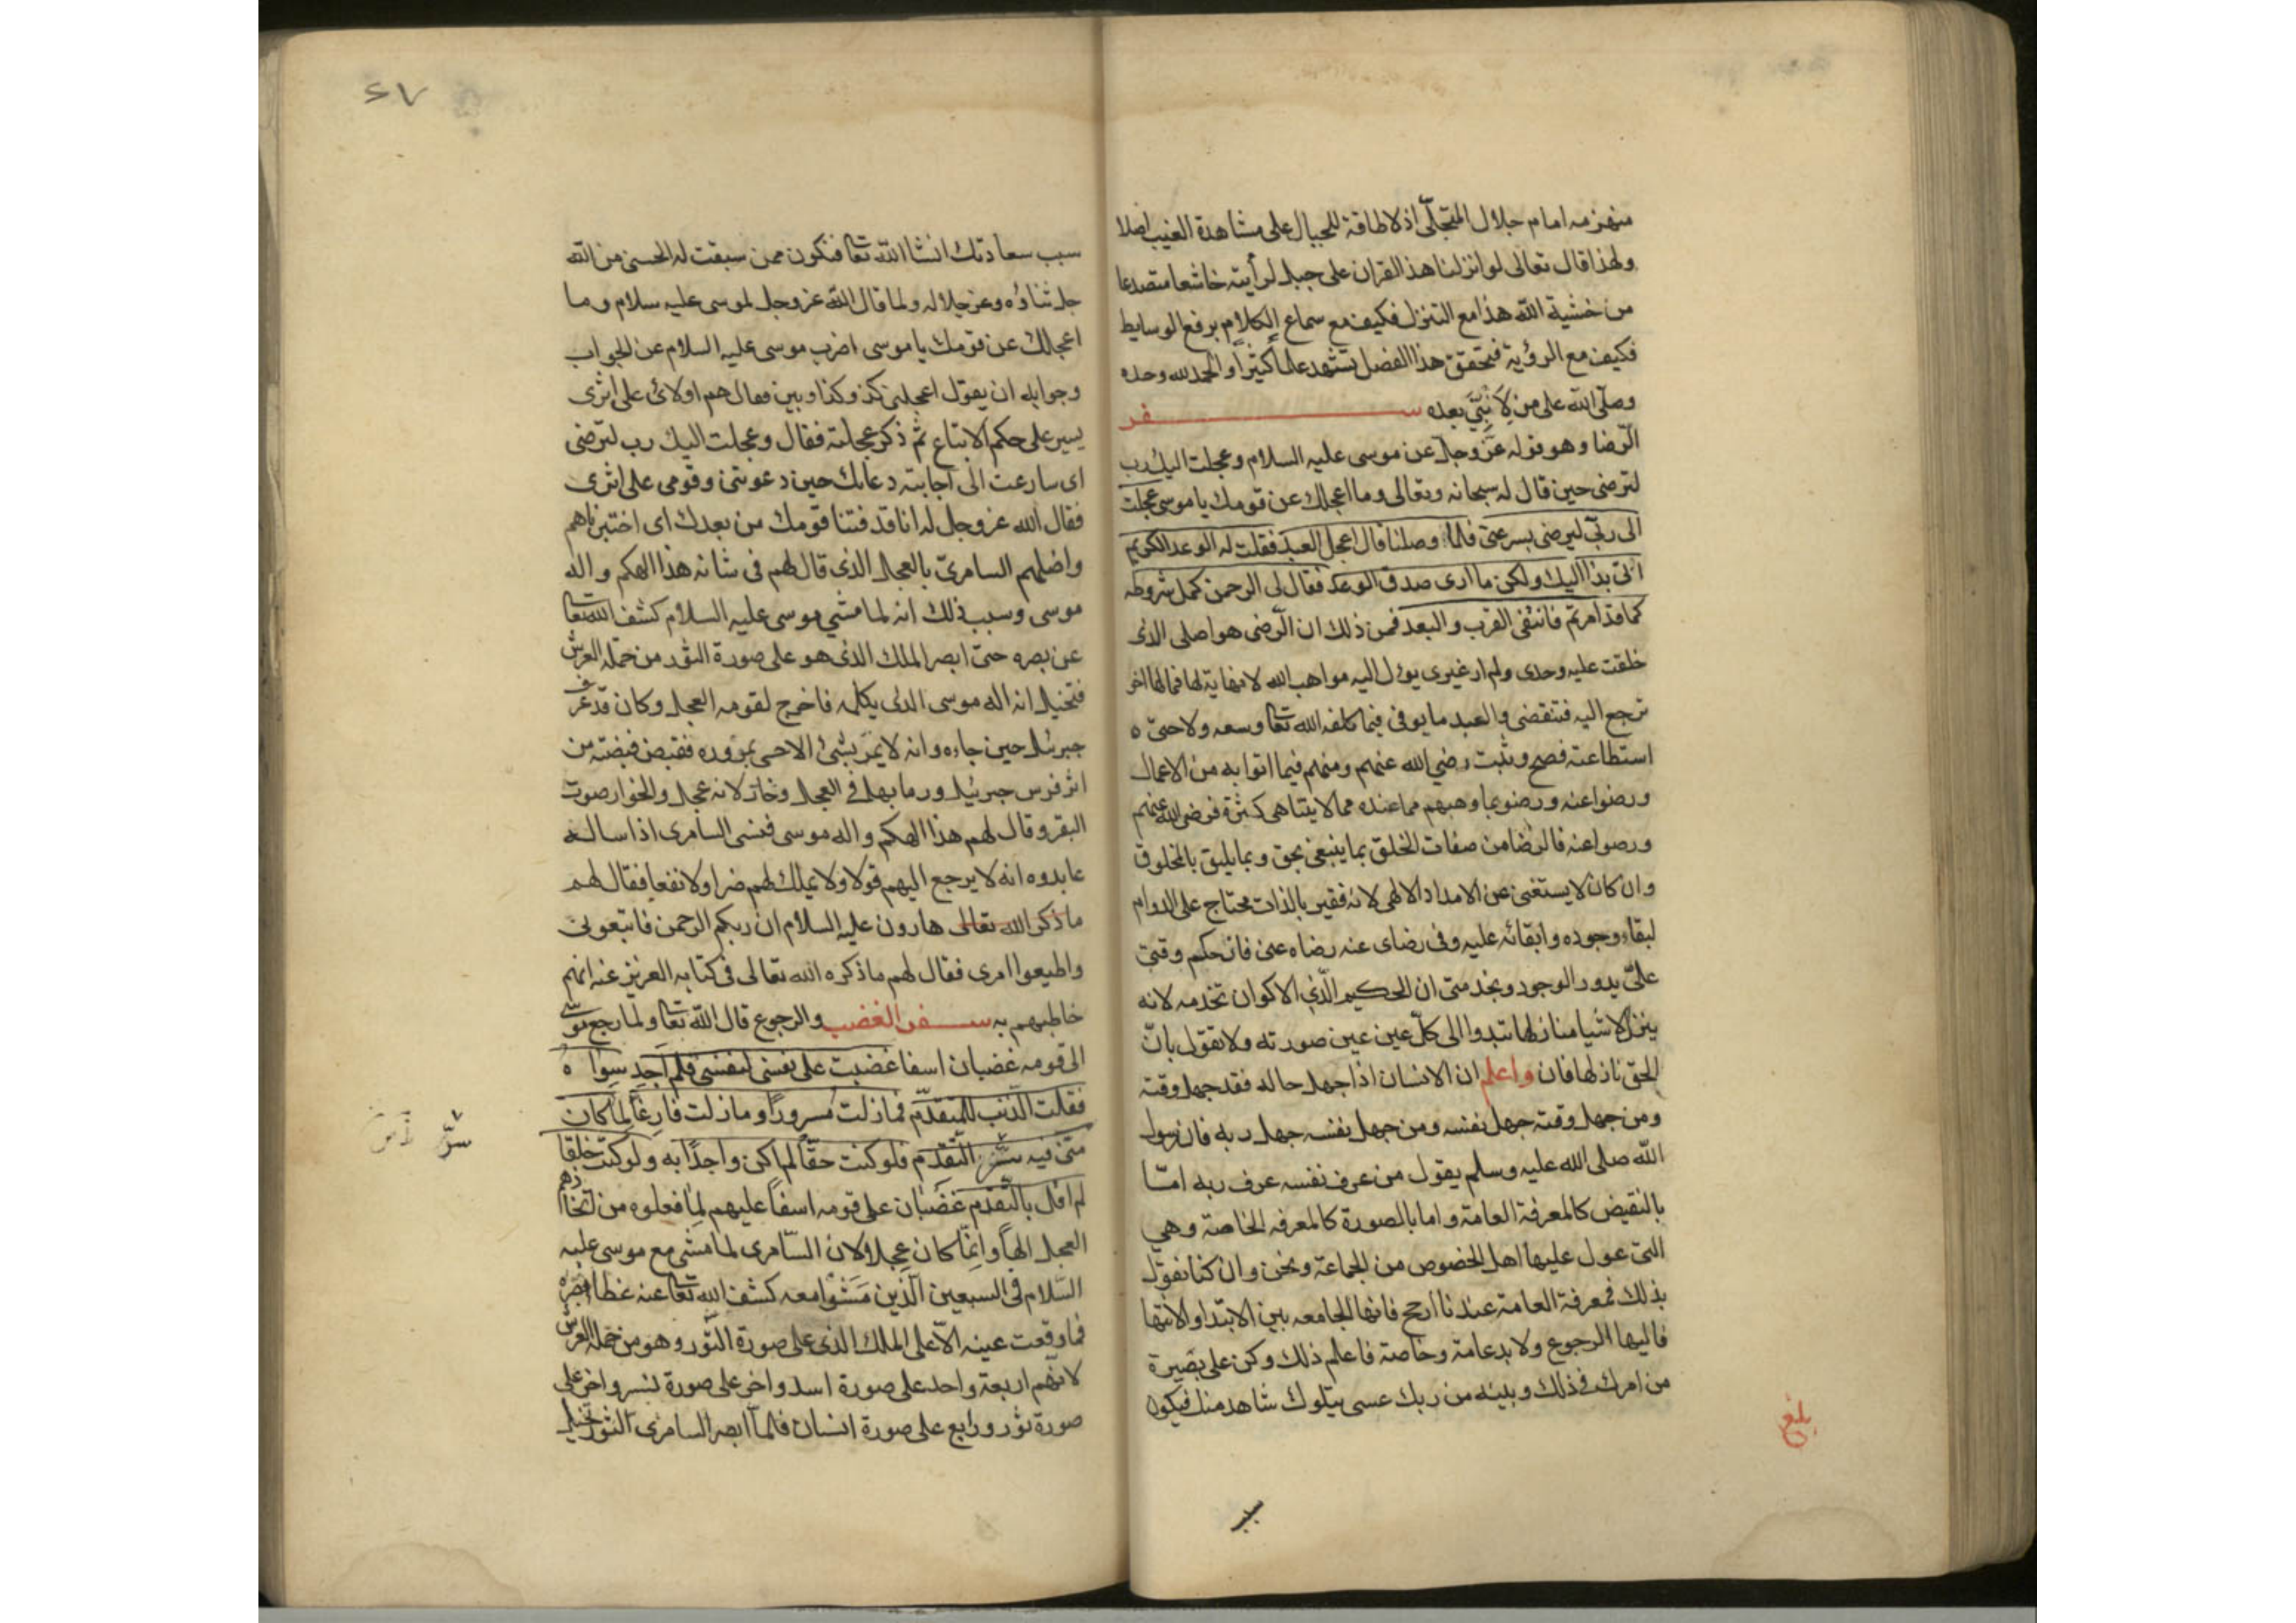 منهزمه امام جلال المتجلّى اذ لا طاقة للجبال على مشاهدة الغيب اصلا
ولهذا قال تعالى لو انزلنا هذا القران على جبل لرأيته خاشعا متصدعا
من خشية الله هذا مع التنزل فكيف مع سماع الكلام برفع الوسايط
فكيف مع الرؤية فتحقق هذا الفصل تشهد علماً كثيراً والحمد لله وحده
وصلّى الله على من لا نبيّ بعده ســـفر
الرّضا وهو قوله عزّ وجل عن موسى عليه السلام وعجلت اليك رب
لترضى حين قال له سبحانه وتعالى وما اعجلك عن قومك يا موسى عجلت
الى ربّى ليرضى بسرعتى فلما وصلنا قال اعجل العبد فقلت له الوعد الكريم
اتى بذا اليك ولكن ما ارى صدق الوعد فقال لى الرحمن كمل شروطه
كما قد امرتم فانتفى القرب والبعد فمن ذلك ان الرّضى هو اصلى الذى
خلقت عليه وحدى ولم ار غيرى يول اليه مواهب الله لا نهاية لها فما لها اخر
ترجع اليه فتنقضى والعبد ما يوفى فيما كلفه الله تعا وسعه ولا حتى ه
استطاعته فصح وثبت رضي الله عنهم ومنهم فيما اتوا به من الاعمال
ورضوا عنه ورضو بما وهبهم مما عنده مما لا يتناهى كثرة فرضى الله عنهم
ورضوا عنه فالرضا من صفات الخلق بما ينبغى بحق وبما يليق بالمخلوق
وان كان لا يستغنى عن الامداد الالهى لانه فقير بالذات محتاج على الدوام
لبقاء وجوده وابقائه عليه وفى رضاى عنه رضاه عنى فان حكم وقتى
علىّ يدور الوجود ويخدمنى ان الحكيم الّذى الاكوان تخدمه لانه
ينزل الاشيا منازلها تبدوا الى كلّ عين عين صورته ولا تقول بانّ
الحق نازلها فان واعلم ان الانسان اذا جهل حاله فقد جهل وقته
ومن جهل وقته جهل نفسه ومن جهل نفسه جهل ربه فان رسول
الله صلى الله عليه وسلم يقول من عرف نفسه عرف ربه امّا
بالنقيض كالمعرفة العامة واما بالصورة كالمعرفه الخاصة وهي
التى عول عليها اهل الخصوص من الجماعة ونحن وان كنا نقول
بذلك فمعرفة العامة عندنا ارجح فانها الجامعه بين الابتدا والانتها
فاليها الرجوع ولا بد عامة وخاصة فاعلم ذلك وكن على بصيرة
من امرك فى ذلك وبينه من ربك عسى يتلوك شاهد منك فيكون
بلغ
سبب
٤٧
سبب سعادتك انشا الله تعا فتكون ممن سبقت له الحسنى من الله
جل ثناؤه وعز جلاله ولما قال الله عز وجل لموسى عليه سلام وما
اعجلك عن قومك يا موسى اضرب موسى عليه السلام عن الجواب
وجوابه ان يقول اعجلنى كذ وكذا وبين فقال هم اولائ على اثرى
يسير على حكم الاتباع ثم ذكر عجلته فقال وعجلت اليك رب لترضى
اى سارعت الى اجابته دعائك حين دعوتنى وقومى على اثرى
فقال الله عز وجل له انا قد فتنا قومك من بعدك اى اختبرناهم
واضلهم السامرىّ بالعجل الذى قال لهم فى شانه هذا الهكم واله
موسى وسبب ذلك انه لما مشي موسى عليه السلام كشف الله تعا
عن بصره حتى ابصر الملك الذى هو على صورة الثور من حملة العرش
فتخيل انه اله موسى الذى يكلمه فاخرج لقومه العجل وكان قد عرف
جبرئيل حين جاءه وانه لا يمرّ بشئ الا حيى بمروره فقبض قبضة من
اثر فرس جبرئيل ورما بها فى العجل وخار لانه عجل والخوار صوت
البقر وقال لهم هذا الهكم واله موسى فنسى السامرى اذا ساله
عابدوه انه لا يرجع اليهم قولا ولا يملك لهم ضرا ولا نفعا فقال لهم
ما ذكر الله تعالى هارون عليه السلام ان ربكم الرحمن فاتبعونى
واطيعوا امرى فقال لهم ما ذكره الله تعالى فى كتابه العزيز عنه انهم
خاطبهم به ســفر الغضب والرجوع قال الله تعا ولما رجع موسى
الى قومه غضبان اسفا غضبت على نفسى لنفسى فلم اجد سوا ه
فقلت الذنب للمتقدّم فما زلت مسروراً وما زلت فارغاً لما كان
منى فيه سنّ التقدم فلو كنت حقّاً لم اكن واجداً به ولو كنت خلقا
لم اقل بالتّقدم غضبان على قومه اسفاً عليهم لما فعلوه من اتخاذهم
العجل الهاً وانما كان عجلا لان السّامرى لما مشى مع موسى عليه
السّلام فى السبعين الّذين مشوا معه كشف الله تعا عنه غطا بصره
فما وقعت عينه الّا على الملك الذى على صورة الثّور وهو من حملة العرش
لانّهم اربعة واحد على صورة اسد واخر على صورة نسر واخر على
صورة ثور ورابع على صورة انسان فلمّا ابصر السامرى الثور تخيل
سرّ